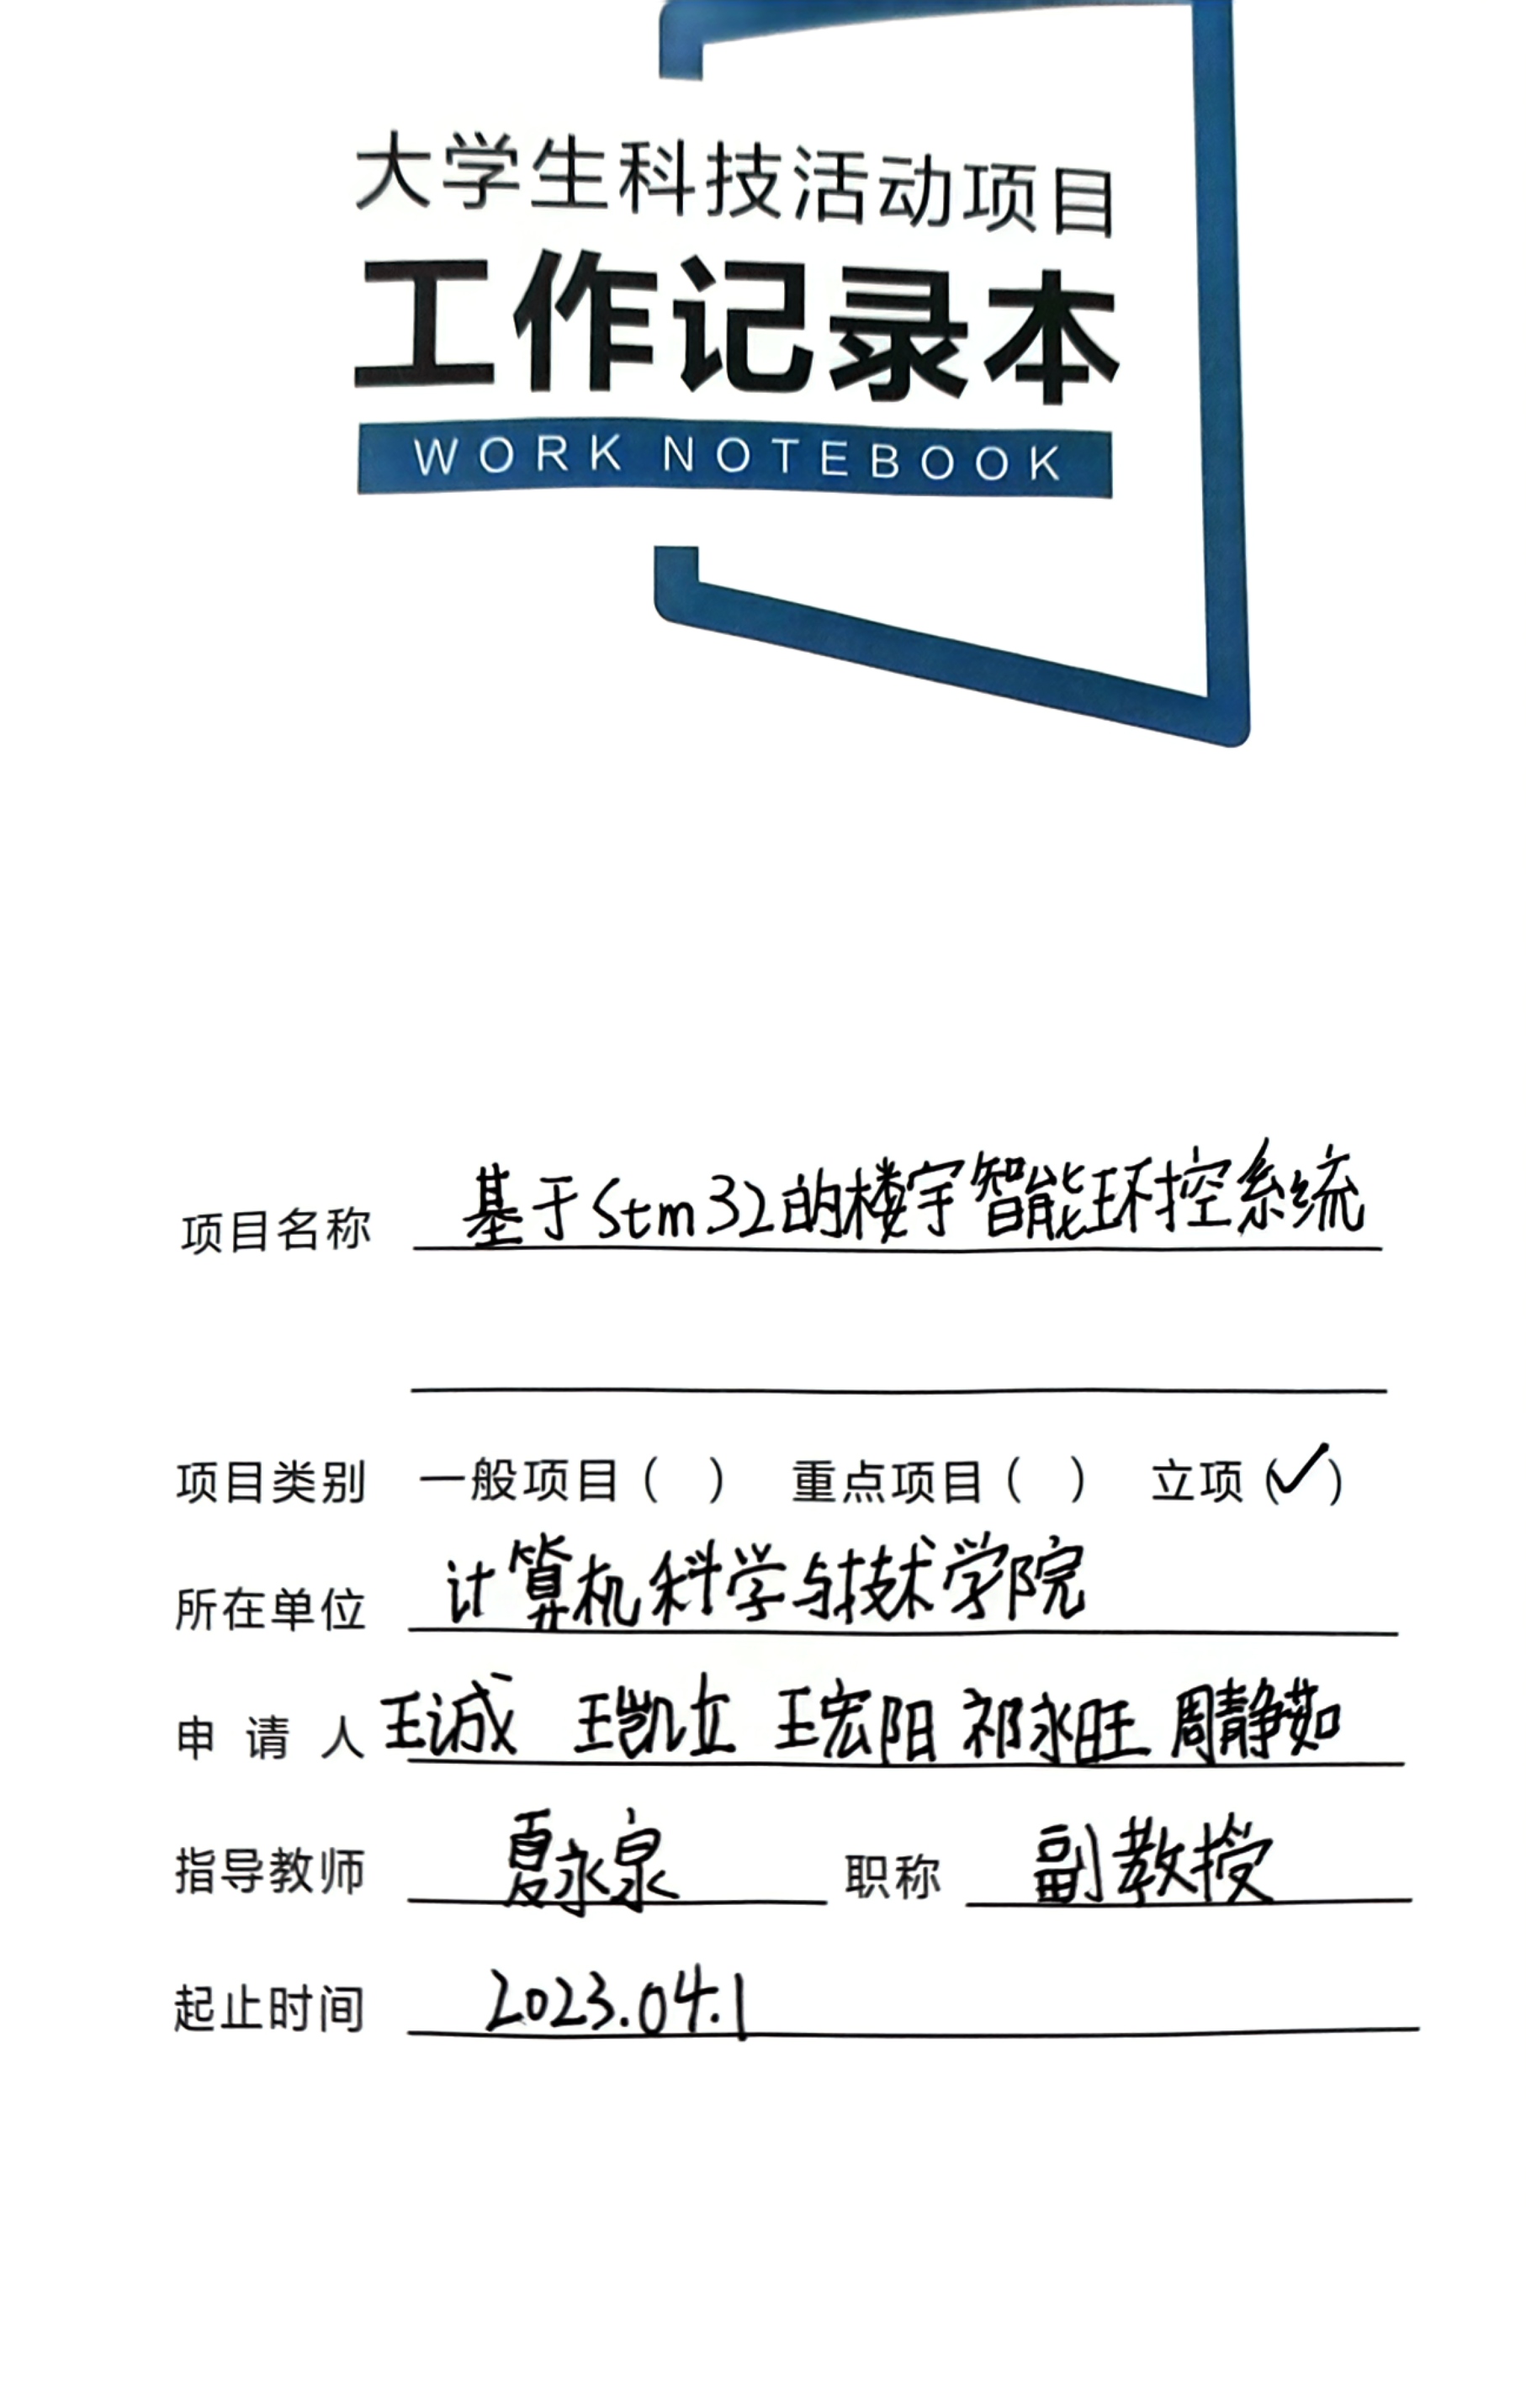 大学生科技活动项目
工作记录本
WORK NOTEBOOK
项目名称 基于Stm32的楼宇智能环控系统
项目类别 一般项目( ) 重点项目( ) 立项(✓)
所在单位 计算机科学与技术学院
申请人 王诚 王凯立 王宏阳 祁永旺 周静茹
指导教师 夏永泉 职称 副教授
起止时间 2023.04.1